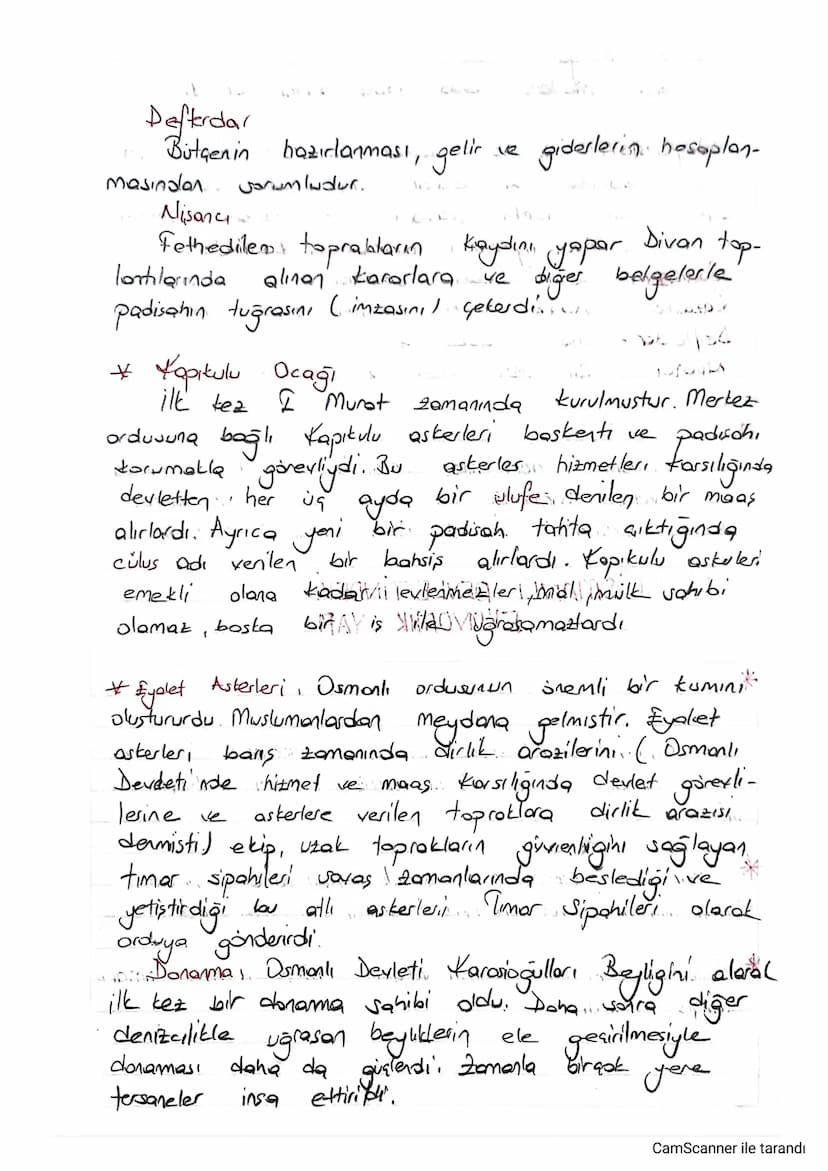 Defterdar
Bütçenin hazırlanması, gelir ve giderlerin hesaplan-
masından sorumludur.
Nişancı
Fethedilen toprakların kaydını yapar Divan top-
lantılarında alınan kararlara ve diğer belgelerle
padişahın tuğrasını (imzasını) çekerdi.
* Kapıkulu Ocağı
İlk kez I Murat zamanında kurulmuştur. Merkez
ordusuna bağlı Kapıkulu askerleri başkenti ve padişahı
korumakla görevliydi. Bu askerler hizmetleri karşılığında
devletten her üç ayda bir ulufe denilen bir maaş
alırlardı. Ayrıca yeni bir padişah tahta çıktığında
cülus adı verilen bir bahşiş alırlardı. Kapıkulu askerleri
emekli olana kadar evlenmezleri, mal, mülk sahibi
olamaz, başka bir iş ile uğraşamazlardı
* Eyalet Askerleri, Osmanlı ordusunun önemli bir kısmını *
oluştururdu. Müslümanlardan meydana gelmiştir. Eyalet
askerleri barış zamanında dirlik arazilerini (Osmanlı
Devleti'nde hizmet ve maaş karşılığında devlet görevli-
lerine ve askerlere verilen topraklara dirlik arazisi
denmişti) ekip, uzak toprakların güvenliğini sağlayan
tımar sipahileri savaş zamanlarında beslediği ve *
yetiştirdiği bu atlı askerleri Tımar Sipahileri olarak
orduya gönderirdi.
Donanma, Osmanlı Devleti Karasioğulları Beyliğini alarak *
ilk kez bir donanma sahibi oldu. Daha sonra diğer
denizcilikle uğraşan beyliklerin ele geçirilmesiyle
donanması daha da güçlendi. Zamanla birçok yere
tersaneler inşa ettirildi.
CamScanner ile tarandı